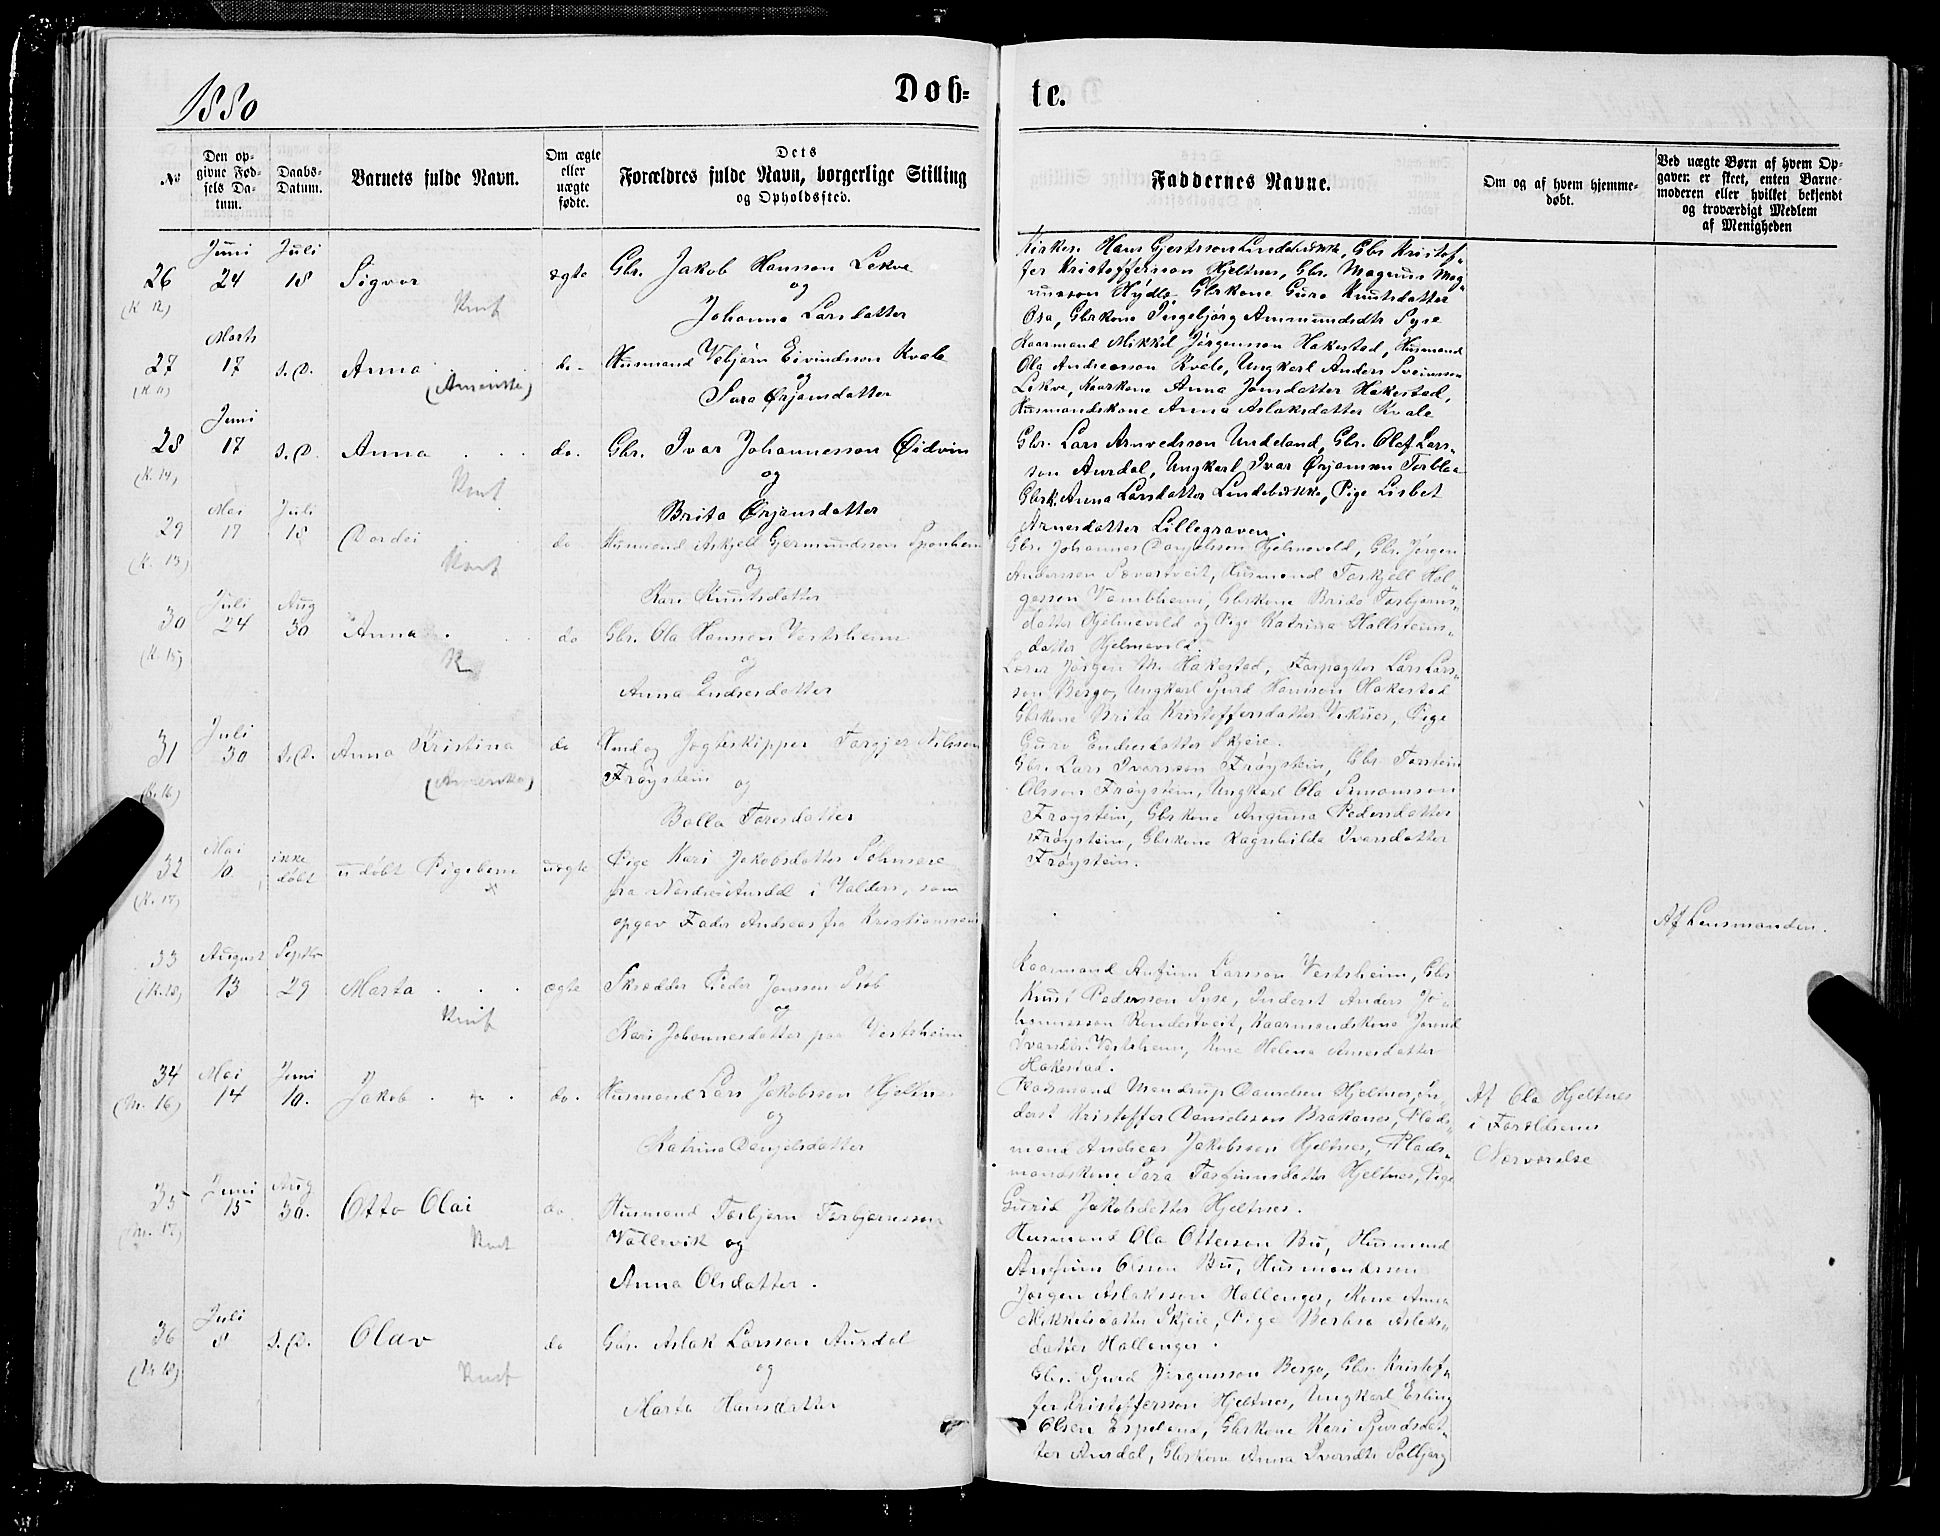 1880
Døb=
te.
No
Den op-
givne Fød-
sels Da-
tum.
Daabs-
Datum.
Barnets fulde Navn.
Om ægte
eller
uægte
fødte.
Dets
Forældres fulde Navn, borgerlige Stilling
og Opholdssted.
Faddernes Navne.
Om og af hvem hjemme-
døbt.
Ved uægte Børn af hvem Op-
gaven er skeet, enten Barne-
moderen eller hvilket bekjendt
og troværdigt Medlem
af Menigheden
26
(K 12)
Juni
24
Juli
18
Sigvor
ægte
Gbr. Jakob Hansson Lekve
og
Johanna Larsdatter
Kirkes. Hans Gjertsson Lindebrække, Gbr Kristof-
fer Kristoffersson Hjeltnes, Gbr. Magnus Mag-
nusson Hydle, Gbrkone Guro Knutsdatter
Osa, Gbrkone Ingebjørg Ammundsdtr Syse
27
Marts
17
s. D.
Anna
(Amerika)
do.
Husmand Vebjørn Eivindsson Kvale
og
Sara Ørjansdatter
Kaarmand Mikkel Jørgensson Hakestad, Husmand
Ola Andreasson Kvale, Ungkarl Anders Sveinsson
Lekve, Kaarkone Anna Jonsdatter Hakestad,
Husmandskone Anna Aslaksdatter Kvale
28
(K. 14)
Juni
17
s. D.
Anna
do.
Gbr. Ivar Johannesson Øidvin
og
Brita Ørjansdatter
Gbr. Lars Arnvedsson Undeland, Gbr. Olaf Lars-
son Aurdal, Ungkarl Ivar Ørjansson Torblaa
Gbrk. Anna Larsdatter Lindebrække, Pige Lisbet
Arnesdatter Lillegraven.
29
(K. 13)
Mai
17
Juli
18
Dordei
do
Husmand Askjell Gjermundsson Sponheim
og
Kari Knutsdatter
Gbr. Johannes Danjelsson Hjelmevold, Gbr. Jørgen
Andersson Sævartveit, Husmand Torkjell Hel-
gesson Vambheim, Gbrkone Brita Torbjørns-
datter Hjelmevold og Pige Katrina Hallsteins-
datter Hjelmevold.
30
(K. 15)
Juli
24
Aug
30
Anna
do
Gbr. Ola Hansson Vestrheim
og
Anna Endresdatter
Lærer Jørgen M. Hakestad, Forpagter Lars Lars-
son Berge, Ungkarl Sjurd Hansson Hakestad
Gbrkone Brita Kristoffersdatter Viknes, Pige
Guro Endresdatter Skjeie.
31
(K. 16)
Juli
30
s. D.
Anna Kristina
(Amerika)
do
Hmd og Jagteskipper Torgjer Nilsson
Frøystein
og
Bolla Toresdatter
Gbr. Lars Ivarsson Frøystein, Gbr. Torstein
Olsson Frøystein, Ungkarl Ola Simonsson
Frøystein, Gbrkone Anguna Pedersdatter
Frøystein, Gbrkone Ragnhilda Ivarsdatter
Frøystein.
32
(K. 17)
Mai
10
ikke
døbt
udøbt Pigebarn
uægte
Pige Kari Jakobsdatter
fra Nordre Aurdal i Valders, som
opgav Fader Andreas fra Kristianssand
Af Lensmanden.
33
(K. 18)
August
13
Septbr
29
Marta
ægte
Skrædder Peder Jonsson Støb
og
Kari Johannesdatter paa Vestrheim
Kaarmand Anfinn Larsson Vestrheim, Gbr
Knut Pedersson Syse, Inderst Anders Jo-
hannesson Rondestveit, Kaarmandskone Jorand
Ivarsdtr Vestrheim, Kone Helena Arnesdatter
Hakestad.
34
(M. 16)
Mai
14
Juni
10.
Jakob
do.
Husmand Lars Jakobsson Hjeltnes
og
Katrina Danjelsdatter
Kaarmand Mandrup Danielsen Hjeltnes, In-
derst Kristoffer Danielsson Brakanes, Plads-
mand Andreas Jakobsson Hjeltnes, Plads-
mandskone Sara Torfinnsdatter Hjeltnes, Pige
Gurid Jakobsdatter Hjeltnes.
Af Ola Hjeltnes
i Forældrenes
Nærværelse
35
(M. 17)
Juni
15
Aug
30.
Otto Olai
do
Husmand Torbjørn Torbjørnsson
Vallevik og
Anna Olsdatter.
Husmand Ola Ottesson Bu, Husmand
Anfinn Olsson Bu, Husmandssøn
Jørgen Aslaksson Hallanger, Kone Anna
Mikkelsdatter Skjeie, Pige Barbra Aslaks-
datter Hallanger.
36
(M. 18)
Juli
8
s. D.
Olav
do
Gbr. Aslak Larsson Aurdal
og
Marta Hansdatter
Gbr. Sjurd Jørgensson Berge, Gbr. Kristof-
fer Kristoffersson Hjeltnes, Ungkarl Erling
Olsen Espeland, Gbrkone Kari Sjurdsdat-
ter Aurdal, Gbrkone Anna Iversdtr Solbjørg